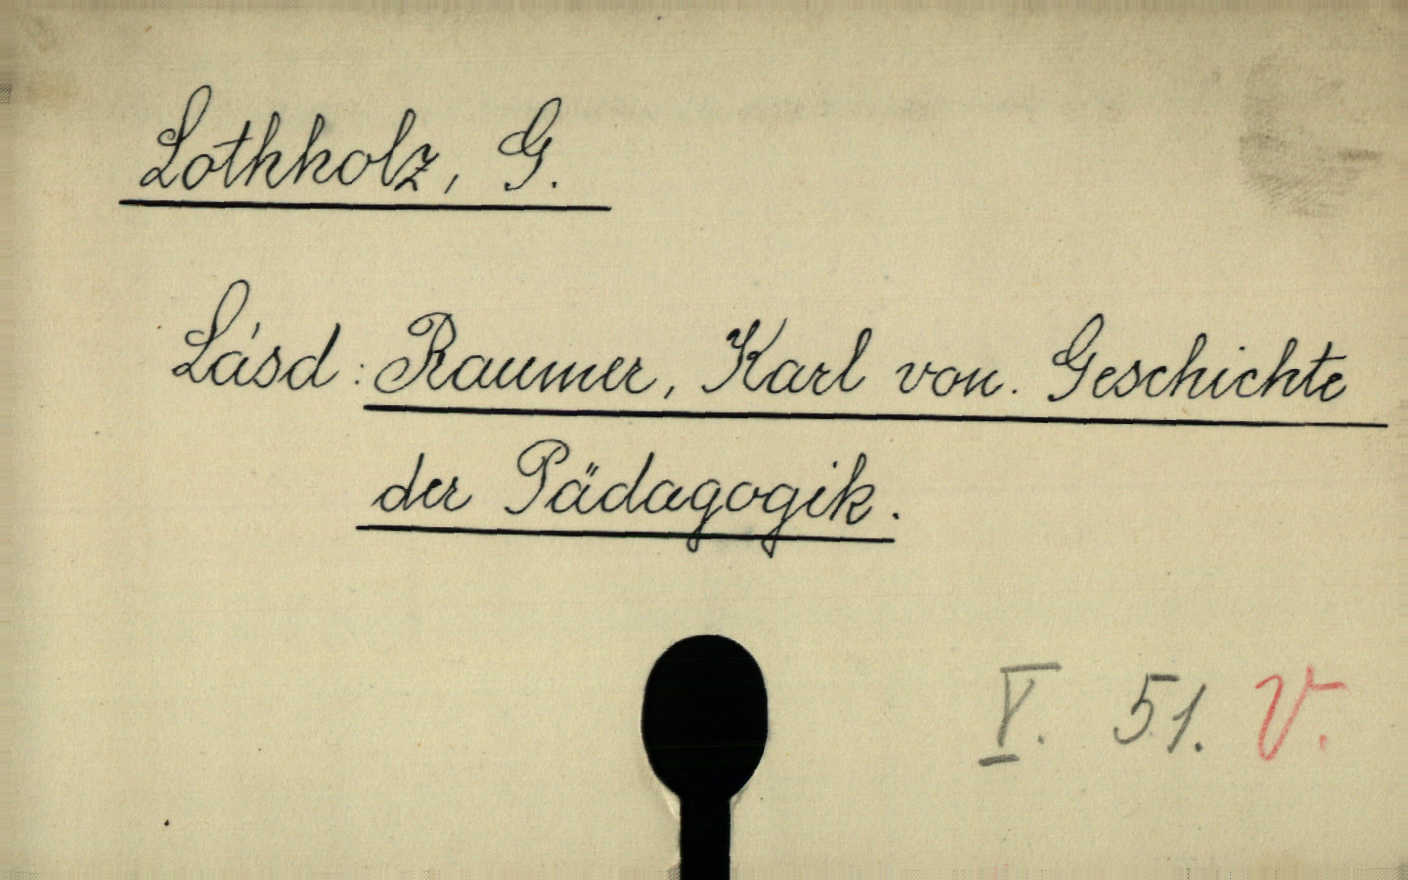 Lothholz, G.
Lásd: Raumer, Karl von. Geschichte
der Pädagogik.
V. 51. V.